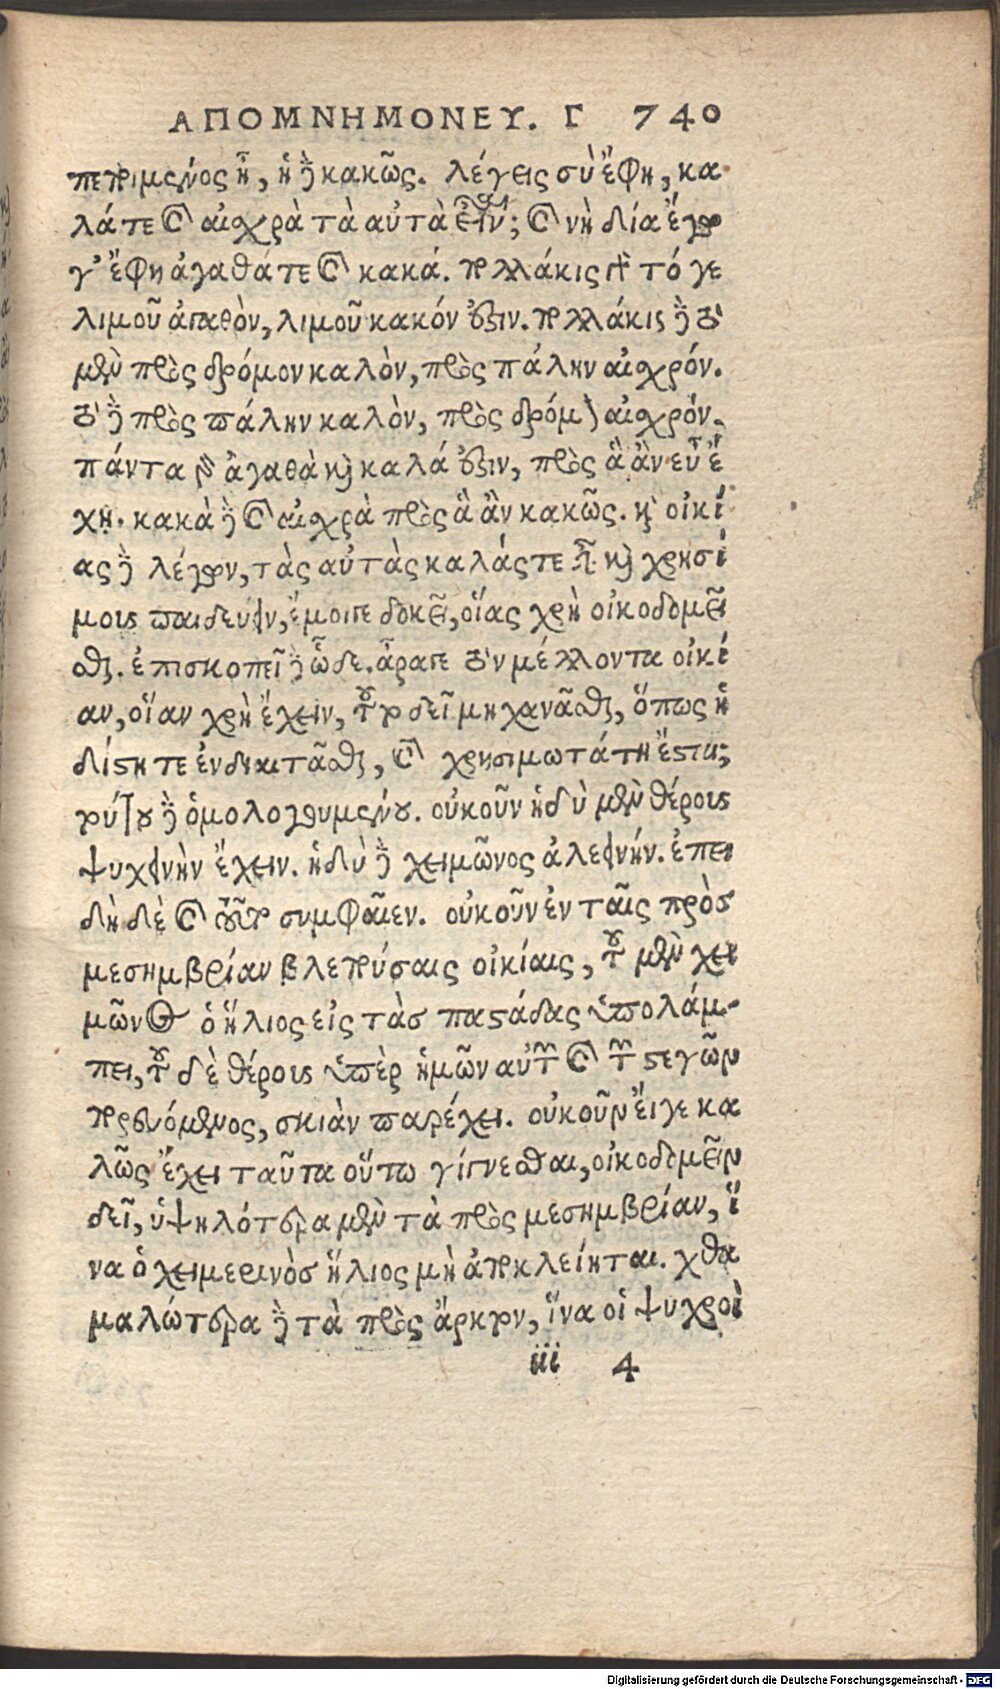 ΑΠΟΜΝΗΜΟΝΕΥ. Γ 740
πεποιημένος ᾖ, ἡ δὲ κακῶς. λέγεις σὺ ἔφη, κα
λά τε καὶ αἰσχρὰ τὰ αὐτὰ εἶναι; καὶ νὴ δία ἔγωγ
γ’ ἔφη ἀγαθά τε καὶ κακά. πολλάκις γὰρ τό γε
λιμοῦ ἀγαθὸν, λιμοῦ κακόν ἐστιν. πολλάκις δὲ τὸ
μὲν πρὸς δρόμον καλὸν, πρὸς πάλην αἰσχρόν.
τὸ δὲ πρὸς πάλην καλὸν, πρὸς δρόμον αἰσχρόν.
πάντα γὰρ ἀγαθὰ καὶ καλά ἐστιν, πρὸς ἃ ἂν εὖ ἔ
χῃ. κακὰ δὲ καὶ αἰσχρὰ πρὸς ἃ ἂν κακῶς. καὶ οἰκί
ας δὲ λέγων, τὰς αὐτὰς καλάς τε εἶναι καὶ χρησί
μους παιδεύειν, ἔμοιγε δοκεῖ, οἵας χρὴ οἰκοδομεῖ
σθαι. ἐπισκοπεῖ δὲ ὧδε. ἆραγε τὸν μέλλοντα οἰκί
αν, οἵαν χρὴ ἔχειν, τοῦτο δεῖ μηχανᾶσθαι, ὅπως ἡ
δίστη τε ἐνδιαιτᾶσθαι, καὶ χρησιμωτάτη ἔσται;
τούτου δὲ ὁμολογουμένου. οὐκοῦν ἡδὺ μὲν θέρους
ψυχεινὴν ἔχειν. ἡδὺ δὲ χειμῶνος ἀλεεινήν. ἐπει
δὴ δὲ καὶ τοῦτο συμφαῖεν. οὐκοῦν ἐν ταῖς πρὸς
μεσημβρίαν βλεπούσαις οἰκίαις, τοῦ μὲν χει
μῶνος ὁ ἥλιος εἰς τὰς παστάδας ὑπολάμ-
πει, τοῦ δὲ θέρους ὑπὲρ ἡμῶν αὐτῶν καὶ τῶν στεγῶν
πορευόμενος, σκιὰν παρέχει. οὐκοῦν εἴγε κα
λῶς ἔχει ταῦτα οὕτω γίγνεσθαι, οἰκοδομεῖν
δεῖ, ὑψηλότερα μὲν τὰ πρὸς μεσημβρίαν, ἵ
να ὁ χειμερινὸς ἥλιος μὴ ἀποκλείηται. χθα
μαλώτερα δὲ τὰ πρὸς ἄρκτον, ἵνα οἱ ψυχροὶ
iii 4
Digitalisierung gefördert durch die Deutsche Forschungsgemeinschaft - DFG